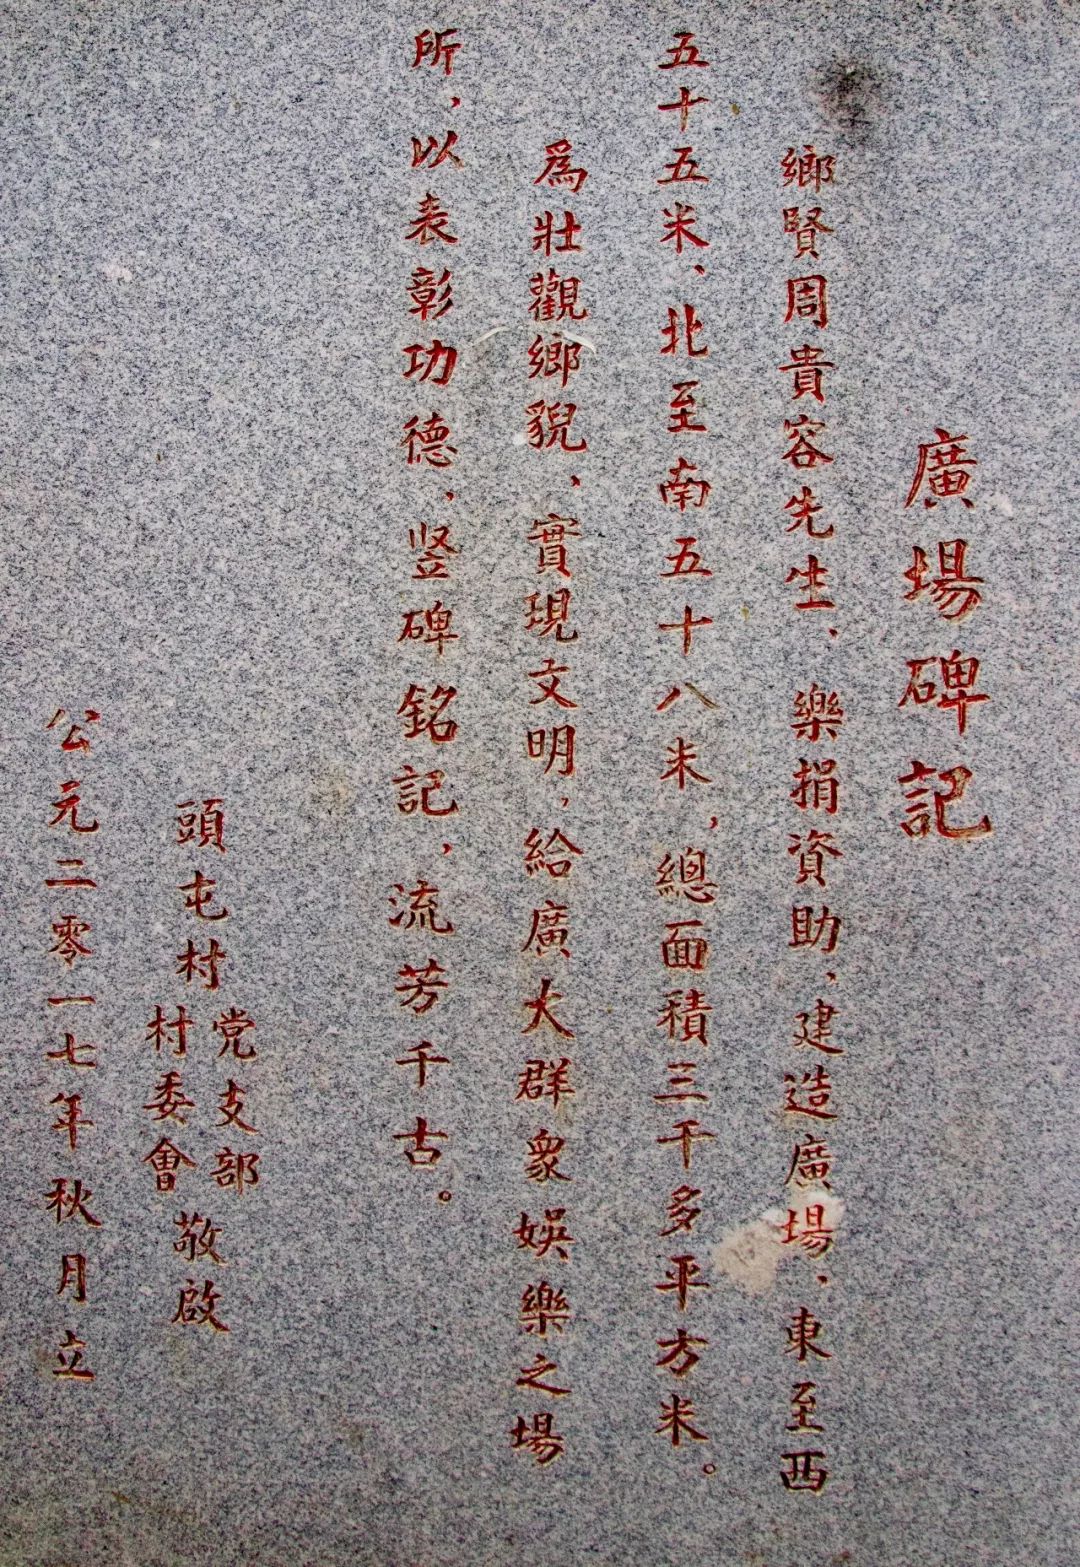 廣場碑記
鄉賢周貴容先生、樂捐資助、建造廣場、東至西
五十五米、北至南五十八米，總面積三千多平方米。
為壯觀鄉貌、實現文明，給廣大群衆娛樂之場
所，以表彰功德、竖碑銘記，流芳千古。
頭屯村
党支部
村委會
敬啟
公元二零一七年秋月立